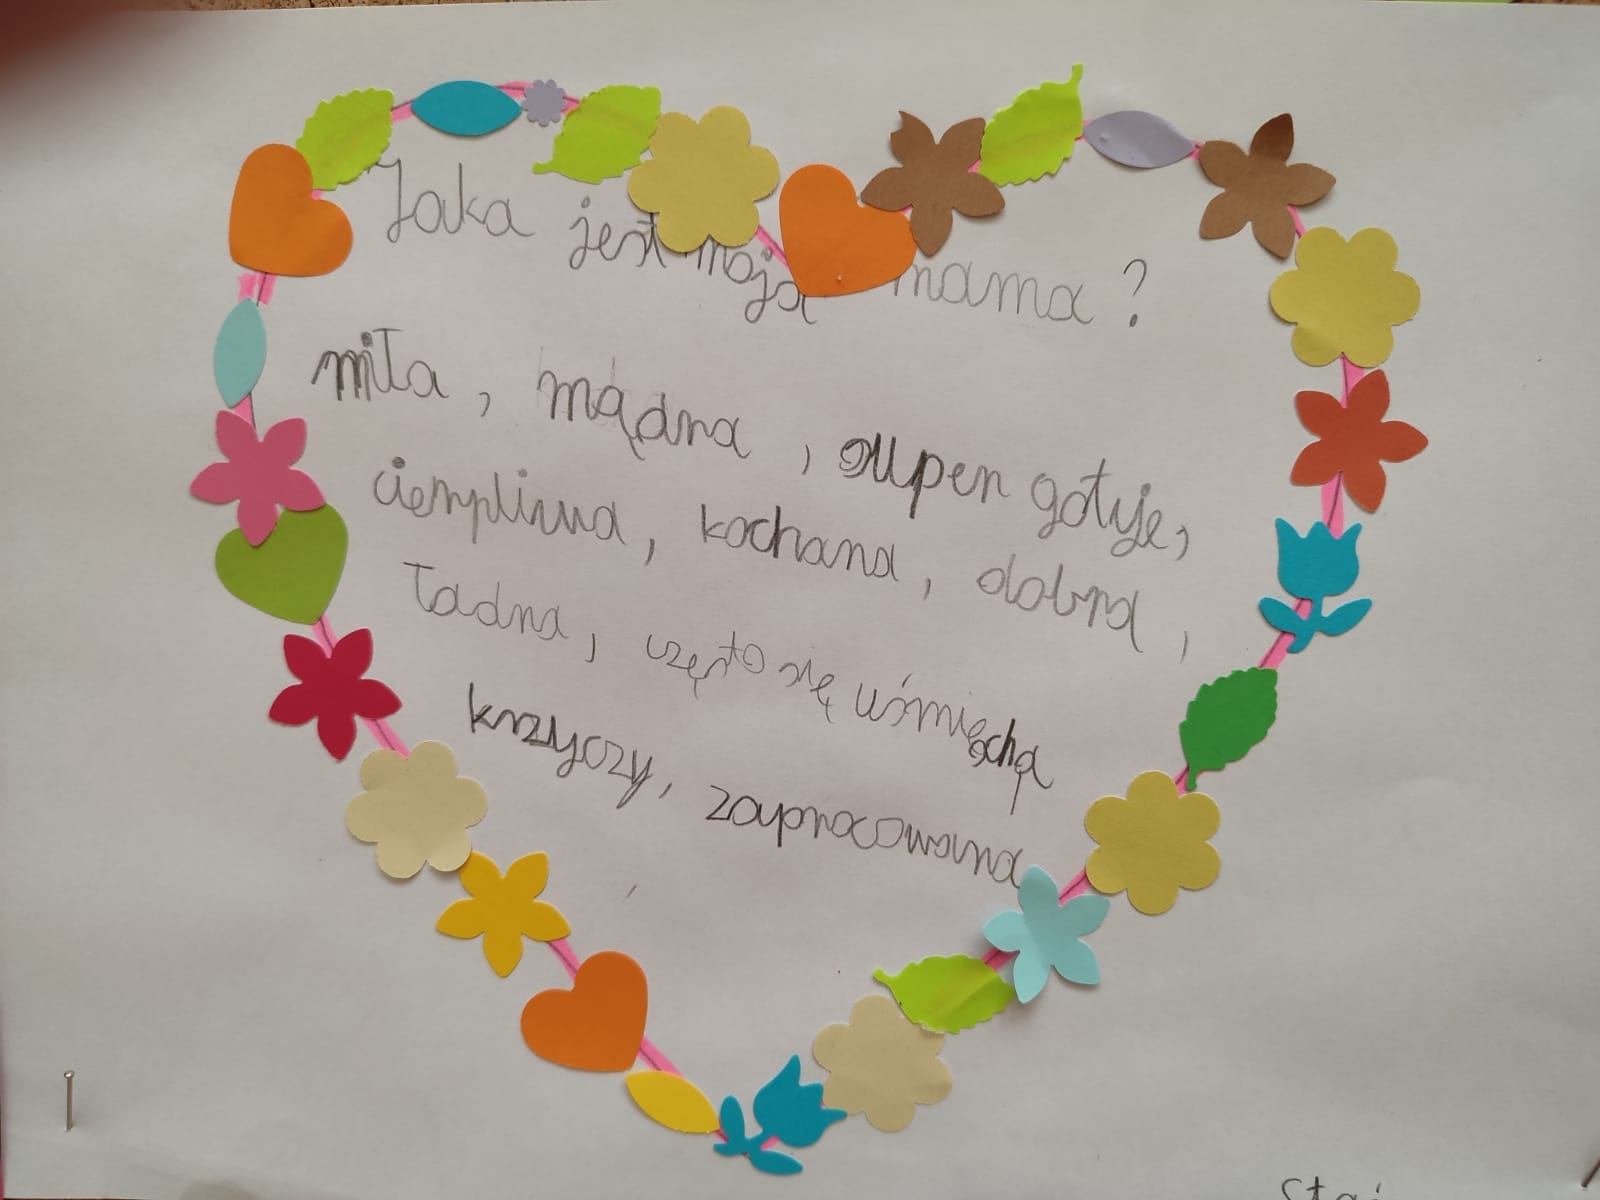 Jaka jest moja mama?
miła, mądra, super gotuje,
cierpliwa, kochana, dobra,
ładna, często się uśmiecha
krzyczy, zapracowana